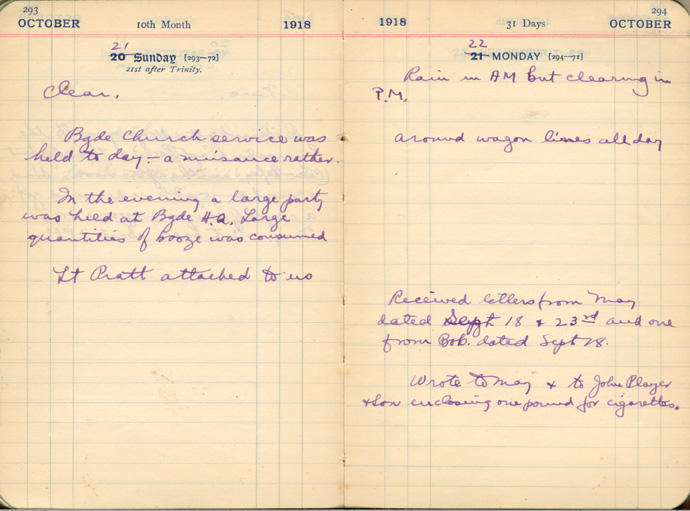 293
OCTOBER 10th Month 1918
21
20 Sunday [293–72]
21st after Trinity.
Clear.
Bgde Church service was
held to day – a nuisance rather.
In the evening a large party
was held at Bgde H.Q. Large
quantities of booze was consumed
Lt Pratt attached to us
294
1918 31 Days OCTOBER
22
21 MONDAY [294–71]
Rain in AM but clearing in
P.M.
around wagon lines all day
Received letters from May
dated Sept 18 & 23rd and one
from Bob. dated Sept 18.
Wrote to May & to John Player
& Son enclosing one pound for cigarettes.